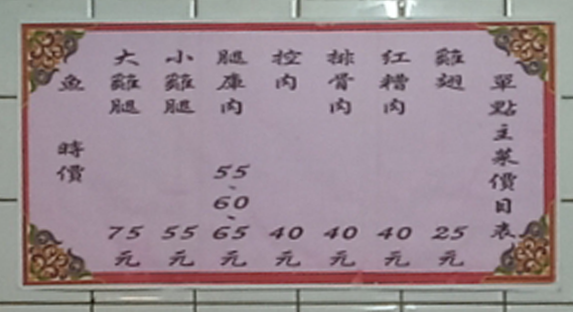 單點主菜價目表
雞翅 25元
紅糟肉 40元
排骨肉 40元
控肉 40元
腿庫肉 55、60、65元
小雞腿 55元
大雞腿 75元
魚 時價